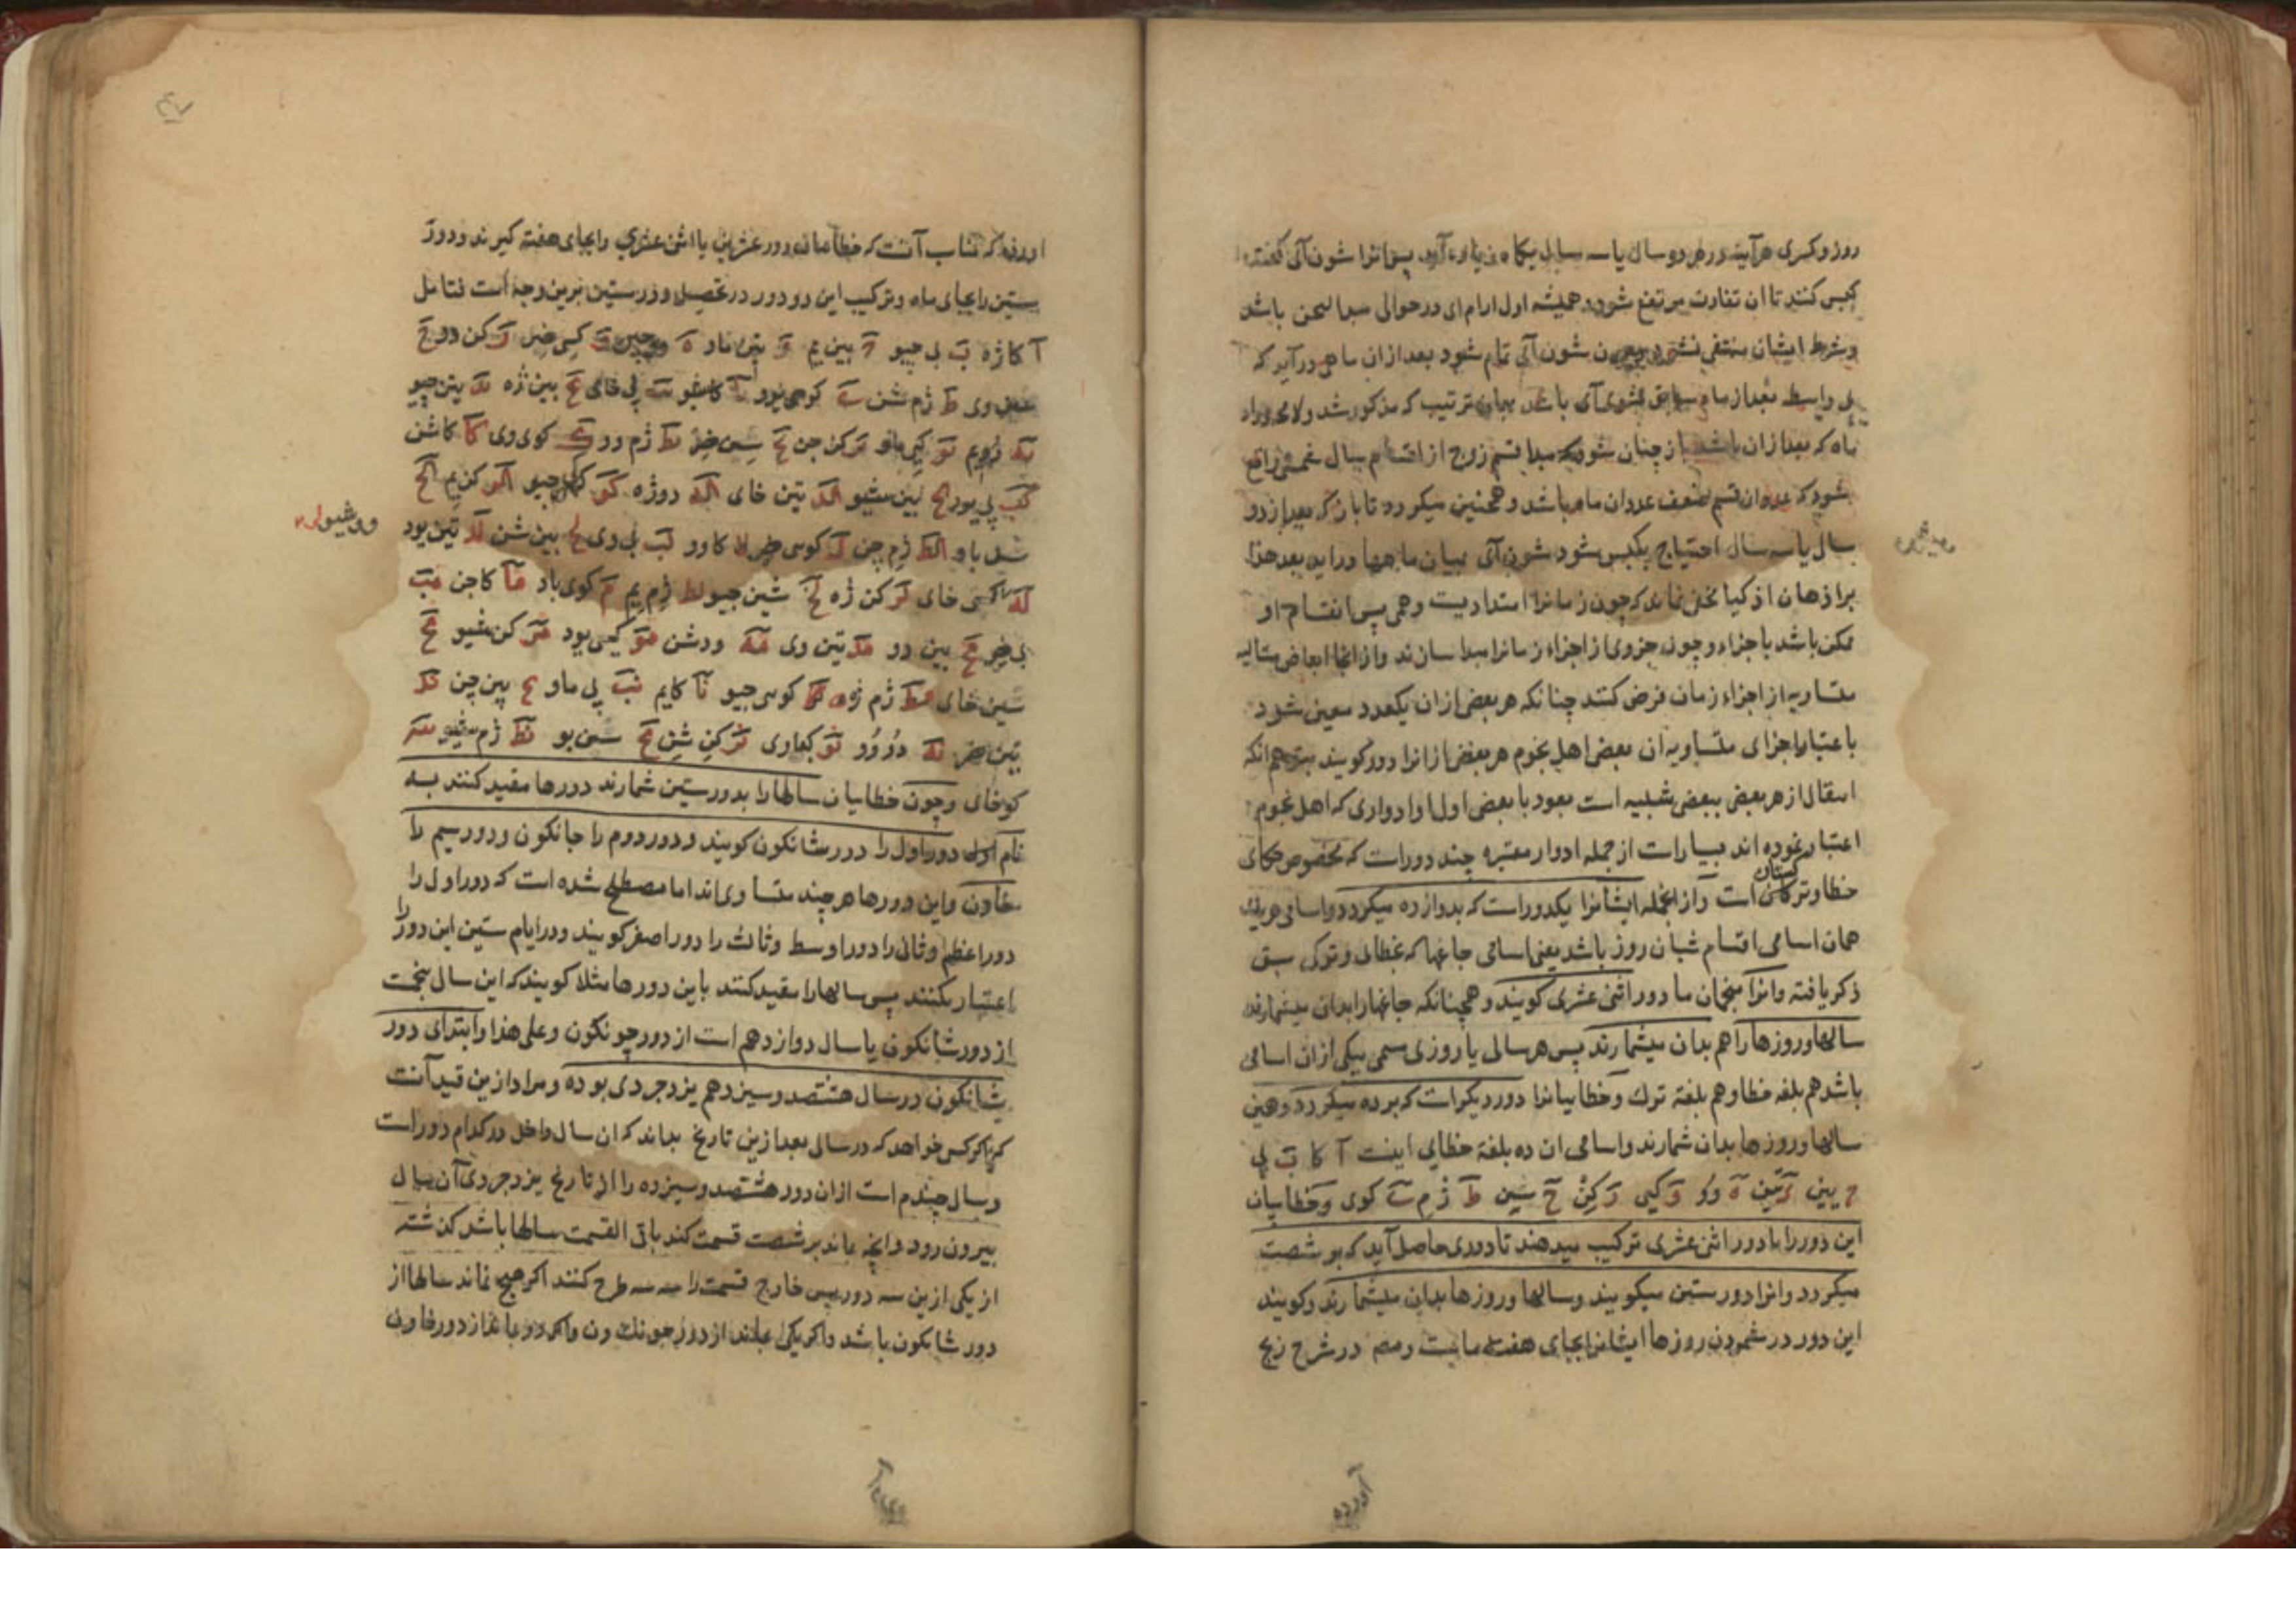 روز و کسری هر آینه در هر دو سال یا سه سال یکماه زیاده آید پس انرا شون آی گفته
کبس کنند تا ان تفاوت مرتفع شود و همیشه اول ارام ای در حوالی مبدا لیحن باشد
و شرط ایشان منتفی نشود چون شون آی تمام شود بعد از ان ماهی در آید که
ماه که بعد از ان باشد باز چنان شود که مبدا قسم زوج از اقسام سال شمسی واقع
شود که عدد ان قسم ضعف عدد ان ماه باشد و همچنین میکرده تا باز که بعد از دو
سال یا سه سال احتیاج بکبس شود شون آی بیان ماهها در این بعد هذا
بر اذهان اذکیا مخفی نماند که چون زمانرا امتدادیست وهمی پس انقسام او
ممکن باشد باجزاء و چون جزوی از اجزاء زمانرا مبدا سازند و از انجا ابعاض متتالیه
متساویه از اجزاء زمان فرض کنند چنانکه هر بعض از ان یکعدد معین شود
باعتبار اجزای متساویه ان بعض اهل نجوم هر بعض از انرا دور کویند بتوهم انکه
انتقال از هر بعض ببعض شبیه است بعود با بعض اول و ادواری که اهل نجوم
اعتبار نموده اند بسیارست از جمله ادوار معتبره چند دورست که مخصوص حکمای
خطا و ترکستان است و از انجمله ایشانرا یکدورست که بدوازده میکردد و اسامی هر یک
همان اسامی اقسام شبان روز باشد یعنی اسامی جاغها که بخطای و ترکی سبق
ذکر یافته و انرا منجمان ما دور اثنی عشری کویند و همچنانکه جاغها را بدان میشمارند
سالها و روزها را هم بدان میشمارند پس هر سالی یا روزی مسمی بیکی از ان اسامی
باشد هم بلغه خطا و هم بلغة ترك و خطاییانرا دور دیکرست که بر ده میکردد و همین
سالها و روزها بدان شمارند و اسامی ان ده بلغة خطایی اینست آ کا ب یی
ج بین د تین ه وو و کیی ز کن ح سین ط ژم ی کوی و خطاییان
این دور را با دور اثنی عشری ترکیب میدهند تا دوری حاصل آید که بر شصت
میکردد و انرا دور ستین میکویند و سالها و روزها بدان میشمارند و کویند
این دور در شمردن روزها ایشانرا بجای هفته ماست و مص در شرح زیج
آورده
اورده که مناسب آنست که خطا میان دور عشری یا اثنی عشری را بجای هفته کیرند و دور
ستین را بجای ماه و ترکیب این دو دور در تحصیل دور ستین برین وجه است فتامل
آ کا ژه ب یی چیو ج بین یم د تین ماو ه وو چن و کی خر ز کن وو ح
سین وی ط ژم شن ی کوی یوو یا کا شو یب یی خای یج بین ژه ید تین چیو
یه وو یم یو کی ماو یز کن چن یح سین خر یط ژم وو ک کوی وی کا کا شن
کب یی یوو کج بین شیو کد تین خای که وو ژه کو کی چیو کز کن یم کح
سین ماو کط ژم چن ل کوی خر لا کا وو لب یی وی لج بین شن لد تین یوو
وو شیو له
لو کی خای لز کن ژه لح شین چیو لط ژم یم م کوی ماو ما کا چن مب
یی خر مج بین وو مد تین وی مه وو شن مو کیی یوو مز کن شیو مح
شین خای مط ژم ژه ن کوی چیو نا کا یم نب یی ماو نج بین چن ند
تین خر نه وو وو نو کی وی نز کن شن نح سین یو نط ژم شیو س
کو خای و چون خطاییان سالها را بدور ستین شمارند دورها مقید کنند به
نام اول دور اول را دور شانکون کویند و دور دوم را جانکون و دور سیم را
خاون و این دورها هر چند متساوی اند اما مصطلح شده است که دور اول را
دور اعظم و ثانی را دور اوسط و ثالث را دور اصغر کویند و در ایام ستین این دور را
اعتبار نکنند پس سالها را مقید کنند باین دورها مثلا کویند که این سال پنجمست
از دور شانکون یا سال دوازدهم است از دور چونکون و علی هذا و ابتدای دور
شانکون در سال هشتصد و سیزدهم یزدجردی بوده و مراد ازین قید آنست
که اکر کس خواهد که در سالی بعد ازین تاریخ بداند که ان سال داخل در کدام دورست
و سال چندم است از ان دور هشتصد و سیزده را از تاریخ یزدجردی آن سال
بیرون رود و انچه ماند بر شصت قسمت کند باقی القسمت سالها باشد کذشته
از یکی ازین سه دور پس خارج قسمت را سه سه طرح کنند اکر هیچ نماند سالها از
دور شانکون باشد و اکر یکی بماند از دور جونك ون و اکر دو بماند از دور خاون